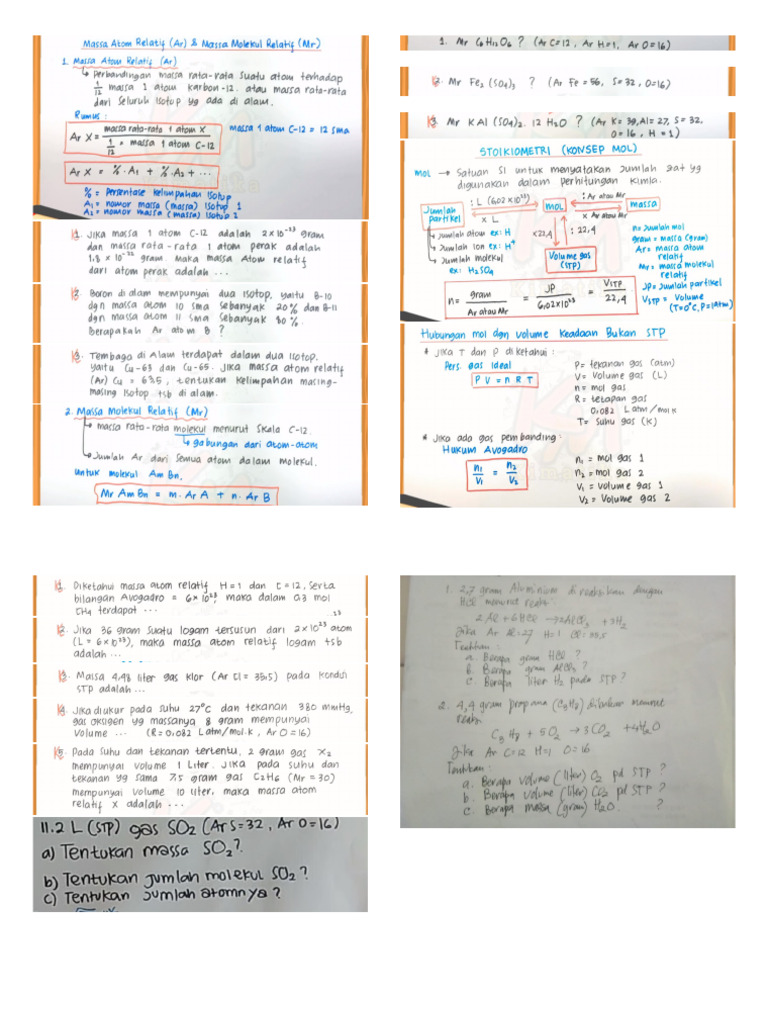 Massa Atom Relatif (Ar) & Massa Molekul Relatif (Mr)
1. Massa Atom Relatif (Ar)
Perbandingan massa rata-rata suatu atom terhadap
1/12 massa 1 atom karbon-12. atau massa rata-rata
dari seluruh isotop yg ada di alam.
Rumus :
Ar X = massa rata-rata 1 atom X / 1/12 × massa 1 atom C-12
massa 1 atom C-12 = 12 sma
Ar X = %.A1 + %.A2 + ...
% = Persentase kelimpahan isotop
A1 = nomor massa (massa) isotop 1
A2 = nomor massa (massa) isotop 2
1. Jika massa 1 atom C-12 adalah 2×10^-23 gram
dan massa rata-rata 1 atom perak adalah
1,8 × 10^-22 gram. Maka massa Atom relatif
dari atom perak adalah ...
2. Boron di alam mempunyai dua isotop, yaitu B-10
dgn massa atom 10 sma sebanyak 20% dan B-11
dgn massa atom 11 sma sebanyak 80%.
Berapakah Ar atom B ?
3. Tembaga di Alam terdapat dalam dua isotop.
yaitu Cu-63 dan Cu-65. Jika massa atom relatif
(Ar) Cu = 63,5, tentukan kelimpahan masing-
masing isotop tsb di alam.
2. Massa Molekul Relatif (Mr)
massa rata-rata molekul menurut skala C-12.
gabungan dari atom-atom
Jumlah Ar dari semua atom dalam molekul.
untuk molekul Am Bn.
Mr Am Bn = m. Ar A + n. Ar B
1. Mr C6H12O6 ? (Ar C=12, Ar H=1, Ar O=16)
2. Mr Fe2 (SO4)3 ? (Ar Fe = 56, S = 32, O=16)
3. Mr K Al (SO4)2. 12 H2O ? (Ar K= 39, Al= 27, S = 32,
O = 16, H = 1)
STOIKIOMETRI (KONSEP MOL)
MOL → Satuan SI untuk menyatakan jumlah zat yg
digunakan dalam perhitungan kimia.
: L (6,02×10^23)
: Ar atau Mr
Jumlah partikel
MOL
massa
x L
x Ar atau Mr
Jumlah atom ex: H
Jumlah ion ex: H+
Jumlah molekul
ex: H2SO4
x22,4
: 22,4
Volume gas (STP)
n= Jumlah mol
gram = massa (gram)
Ar = massa atom
relatif
Mr = massa molekul
relatif
JP= Jumlah partikel
VSTP = Volume
(T=0°C, P=1 Atm)
n= gram / Ar atau Mr = JP / 6,02×10^23 = VSTP / 22,4
Hubungan mol dgn volume Keadaan Bukan STP
* Jika T dan P diketahui :
Pers. gas Ideal
P V = n R T
P= tekanan gas (atm)
V= Volume gas (L)
n = mol gas
R = tetapan gas
0,082 L atm/mol K
T= Suhu gas (K)
* Jika ada gas pembanding :
Hukum Avogadro
n1/V1 = n2/V2
n1 = mol gas 1
n2 = mol gas 2
V1 = volume gas 1
V2 = Volume gas 2
1. Diketahui massa atom relatif H = 1 dan C = 12, serta
bilangan Avogadro = 6×10^23, maka dalam 0,3 mol
CH4 terdapat ...
2. Jika 36 gram suatu logam tersusun dari 2×10^23 atom
(L = 6×10^23), maka massa atom relatif logam tsb
adalah ...
3. Massa 4,48 liter gas klor (Ar Cl = 35,5) pada kondisi
STP adalah ...
4. Jika diukur pada suhu 27°C dan tekanan 380 mmHg,
gas oksigen yg massanya 8 gram mempunyai
volume ... (R = 0,082 L atm/mol.K, Ar O = 16)
5. Pada suhu dan tekanan tertentu, 2 gram gas X2
mempunyai volume 1 Liter. Jika pada suhu dan
tekanan yg sama 7,5 gram gas C2H6 (Mr = 30)
mempunyai volume 10 liter, maka massa atom
relatif X adalah ...
11.2 L (STP) gas SO2 (Ar S=32, Ar O=16)
a) Tentukan massa SO2?
b) Tentukan jumlah molekul SO2 ?
c) Tentukan jumlah atomnya ?
1. 2,7 gram Aluminium di reaksikan dengan
HCl menurut reaksi :
2 Al + 6 HCl → 2 AlCl3 + 3H2
Jika Ar Al=27 H=1 Cl : 35,5
Tentukan :
a. Berapa gram HCl ?
b. Berapa gram AlCl3 ?
c. Berapa liter H2 pada STP ?
2. 4,4 gram propana (C3H8) dibakar menurut
reaksi
C3 H8 + 5O2 → 3 CO2 + 4H2O
Jika Ar C=12 H=1 O=16
Tentukan :
a. Berapa volume (liter) O2 pd STP ?
b. Berapa volume (liter) CO2 pd STP ?
c. Berapa massa (gram) H2O. ?